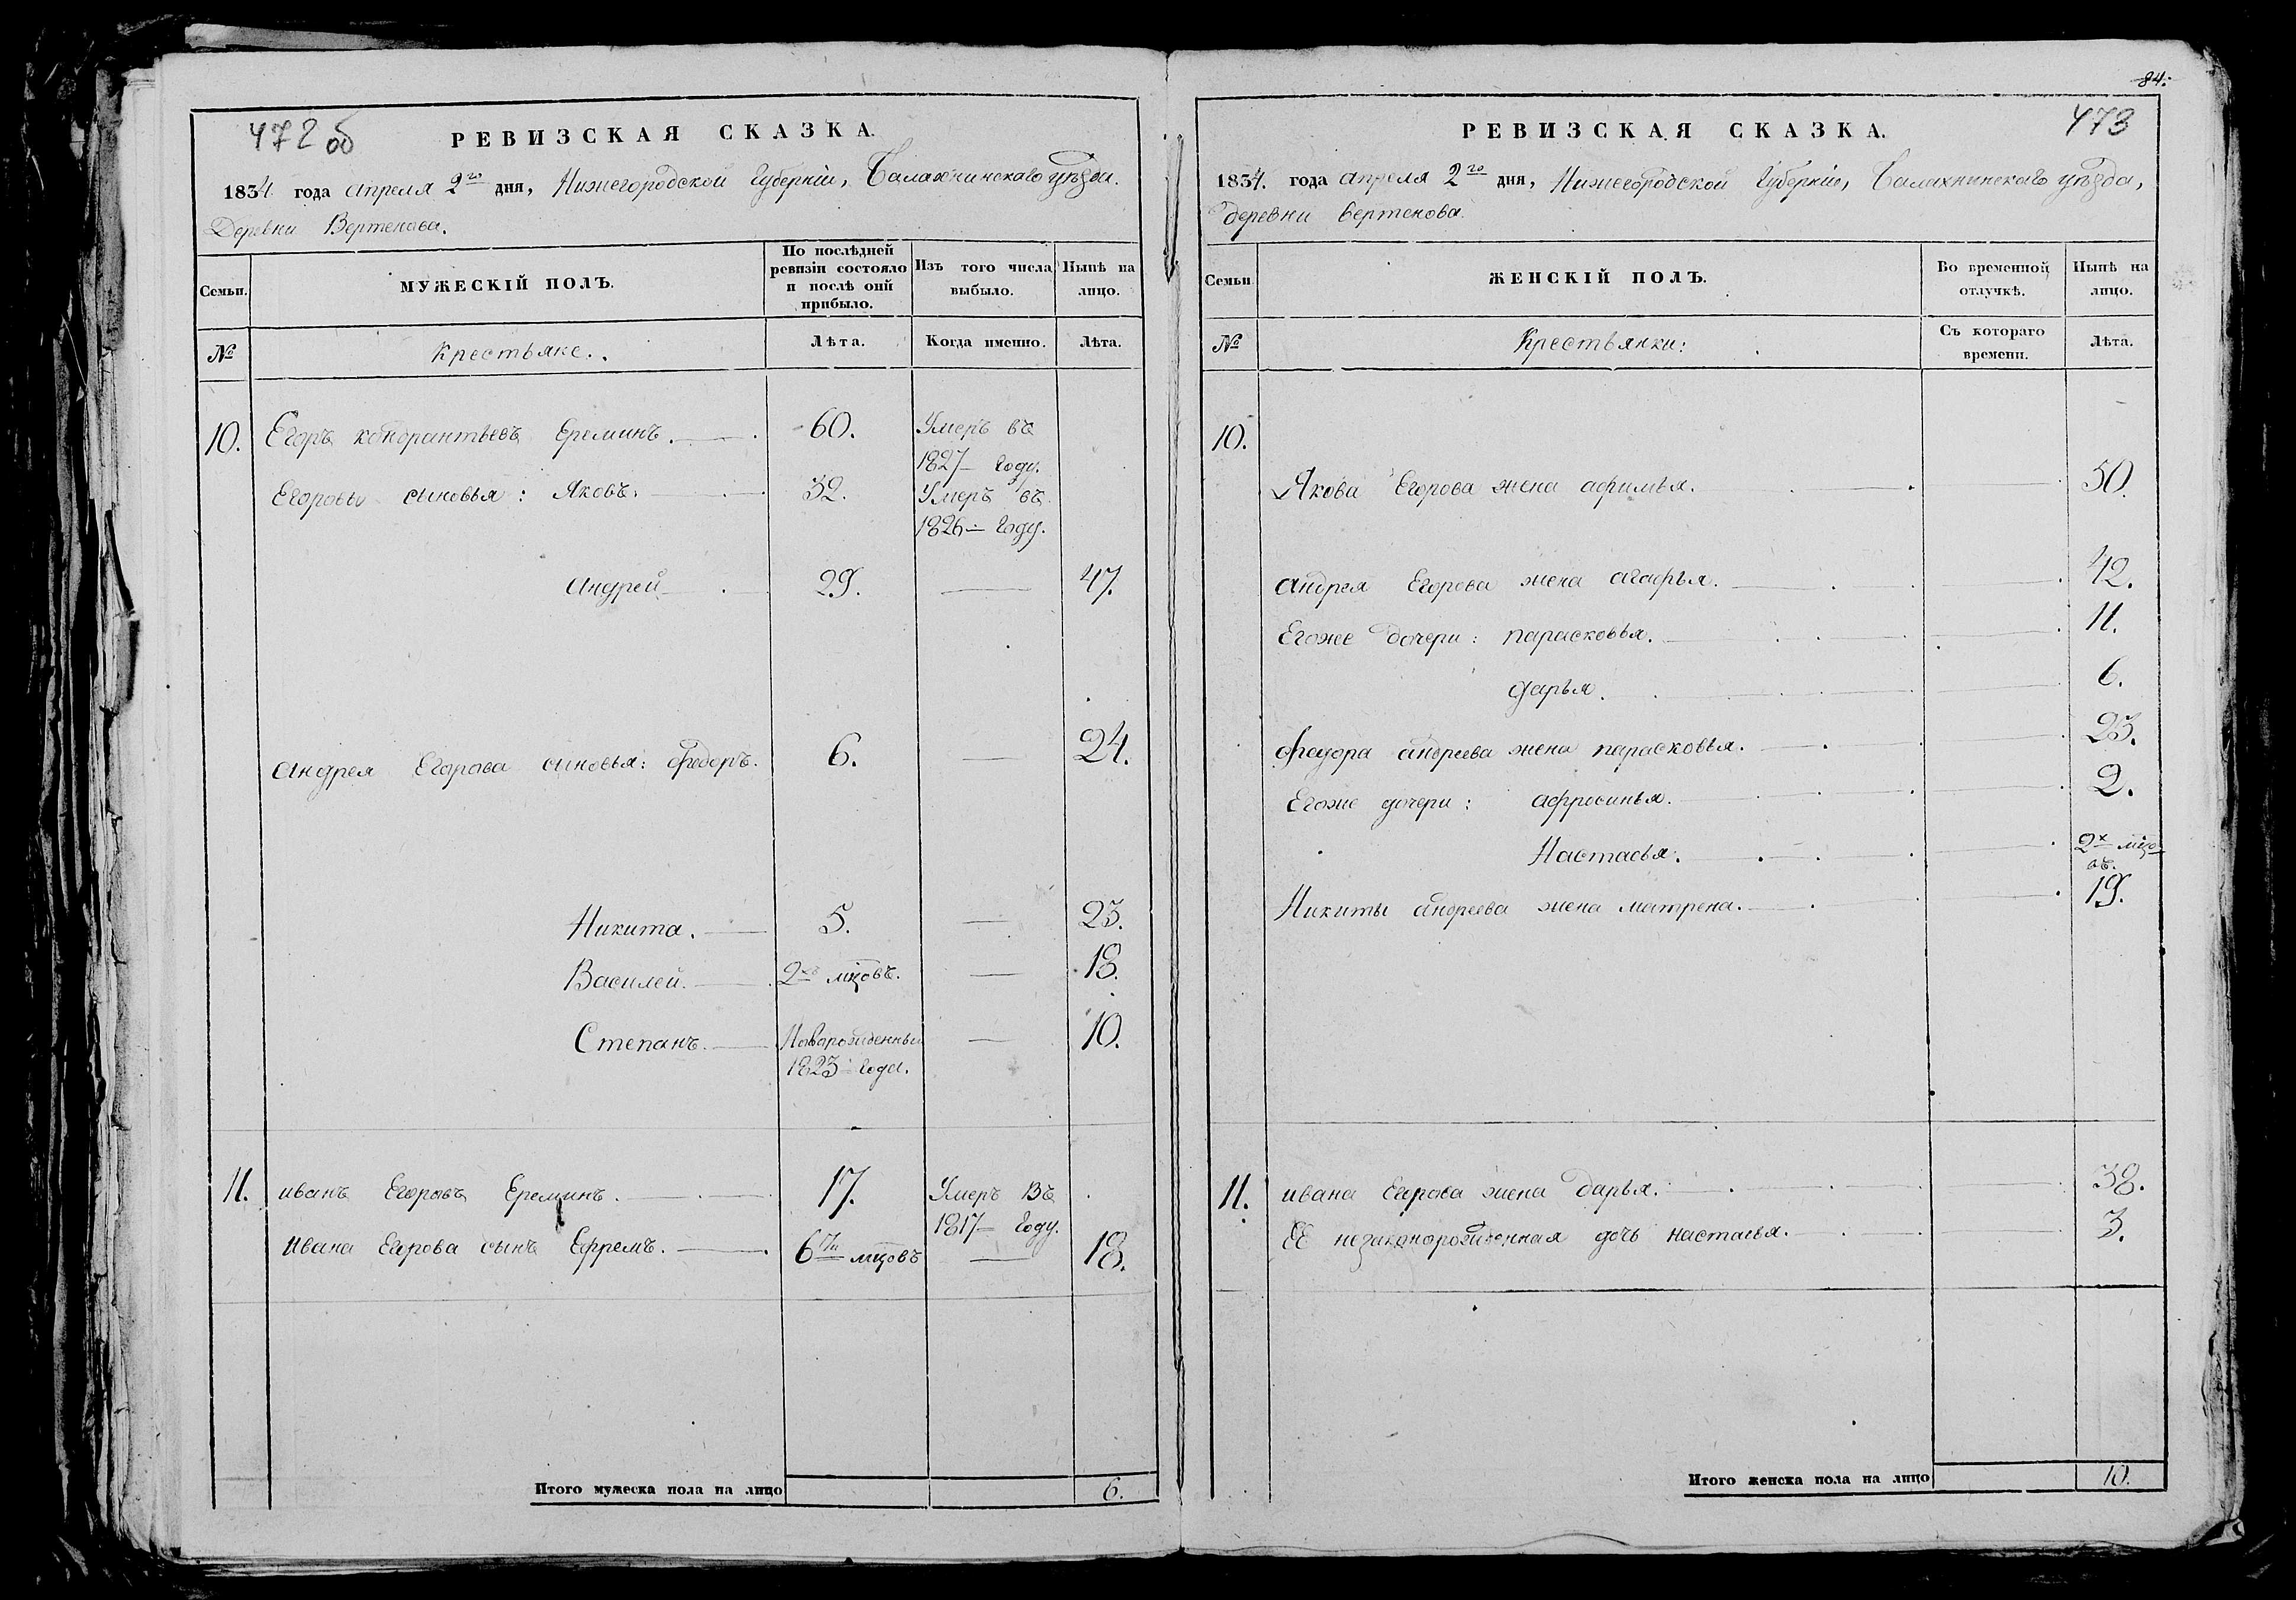 472 об
РЕВИЗСКАЯ СКАЗКА.
1834 года апреля 2го дня, Нижегородской Губернiи, Балахнинскаго уѣзда.
Деревни Вертенова.
Семьи.
МУЖЕСКІЙ ПОЛЪ.
По послѣдней ревизіи состояло и послѣ оній прибыло.
Изъ того числа выбыло.
Нынѣ на лицо.
№
Крестьяне.
Лѣта.
Когда именно.
Лѣта.
10. Егоръ кондрантьевъ Ереминъ. 60. Умеръ въ
1827 Году.
Егоровы сыновья: Яковъ. 32. Умеръ въ
1826 Году.
Андрей 29. 47.
Андрея Егорова сыновья: Федоръ. 6. 24.
Никита. 5. 23.
Василей. 2хъ мцовъ. 18.
Степанъ. Наворожденный 10.
1823 Года.
11. иванъ Егоровъ Ереминъ. 17. Умеръ Въ
1817 Году.
Ивана Егорова сынъ Ефремъ. 6ти мцовъ 18.
Итого мужеска пола на лицо 6.
84.
473
РЕВИЗСКАЯ СКАЗКА.
1834. года апреля 2го дня, Нижегородской Губернiи, Балахнинскаго уѣзда,
деревни вертенова.
Семьи
ЖЕНСКІЙ ПОЛЪ.
Во временной отлучкѣ.
Нынѣ на лицо.
№
Крестьянки:
Съ котораго времени.
Лѣта.
10.
Якова Егорова жена афимья. 50.
андрея Егорова жена агафья. 42.
Егоже дочери: парасковья. 11.
дарья. 6.
федора андреева жена парасковья. 23.
Егоже дочери: афросинья. 2.
Настасья. 2х мцо
въ.
Никиты андреева жена матрена. 19.
11. ивана Егорова жена дарья. 38.
Её незаконорожденная дочь настасья. 3.
Итого женска пола на лицо 10.